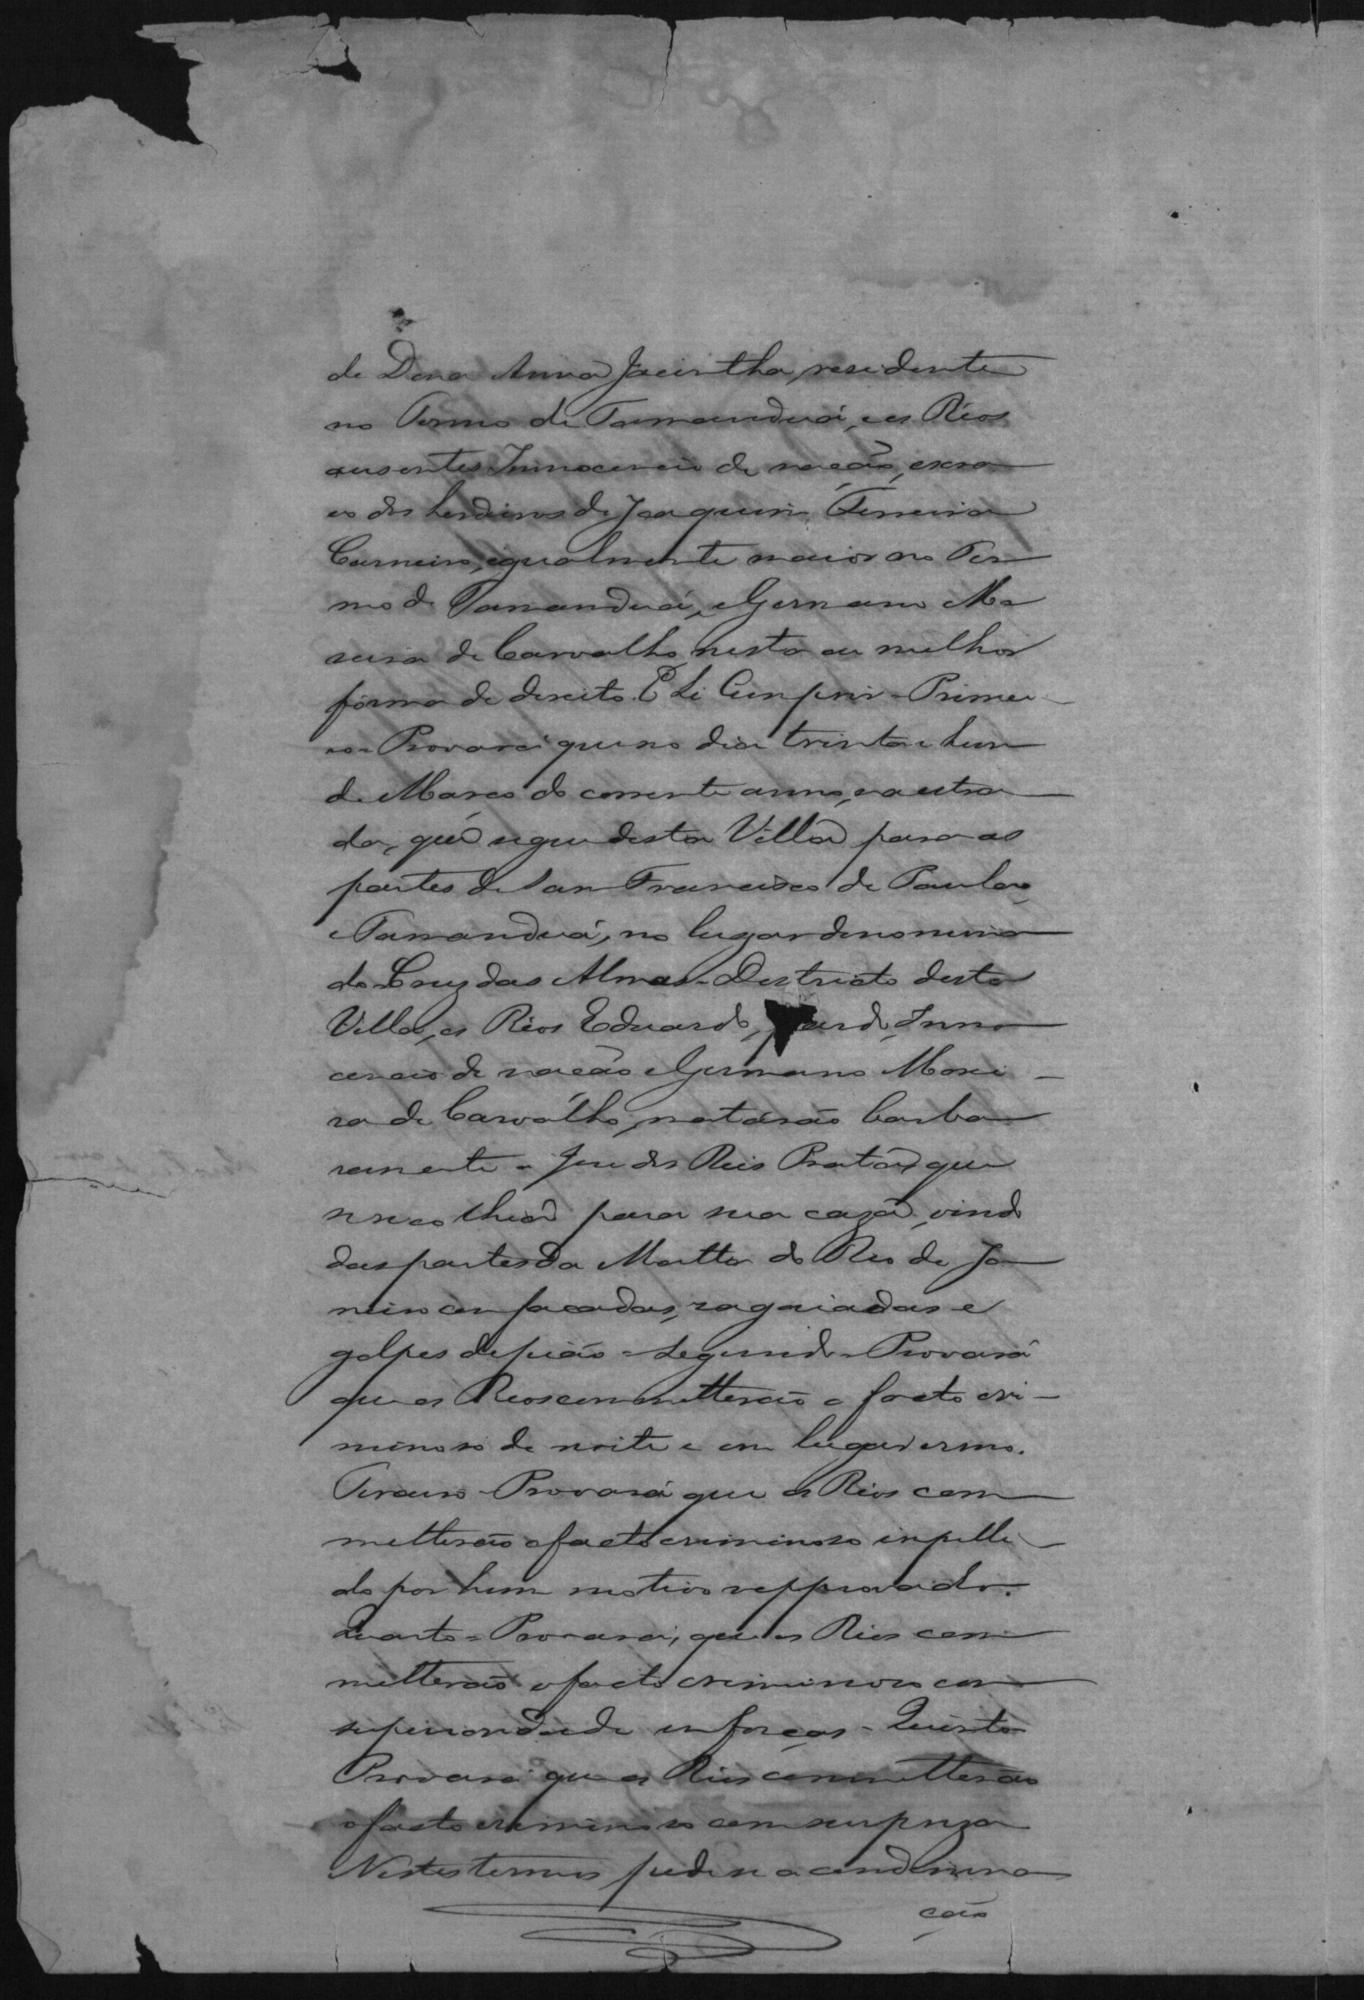 de Dona Anna Jacintha, residente
no Termo de Tamanduá, e os Réos
ausentes Innocencio de nação, escra-
vo dos herdeiros de Joaquim Ferreira
Carneiro, igualmente maior no Ter-
mo de Tamanduá, e Germano Mo-
reira de Carvalho, nesta ou melhor
fórma de direito. E Se Cumprir - Primei-
ro - Provará que no dia trinta e hum
de Março do corrente anno, na estra-
da, que segue desta Villa para as
partes de San Francisco de Paula,
e Tamanduá, no lugar denomina-
do - Cruz das Almas - Destricto desta
Villa, os Réos Eduardo, pardo, Inno-
cencio de nação e Germano Morei-
ra de Carvalho, matárão barba-
ramente a José dos Reis Pratas, que
se recolhia para sua caza, vindo
das partes da Matta do Rio de Ja-
neiro com facadas, zagaiadas e
golpes de fição - Segundo - Provará
que os Reos commetterão o facto cri-
minoso de noite e em lugar ermo.
Terceiro - Provará que os Réos com-
metterão o facto criminoso impelli-
do por hum motivo repprovado.
Quarto - Provará, que os Réos com-
metterão o facto criminoso com
superioridade em forças - Quinto
Provará que os Réos commetterão
o facto criminoso com surpreza
Nestes termos pede-se a condemna-
ção